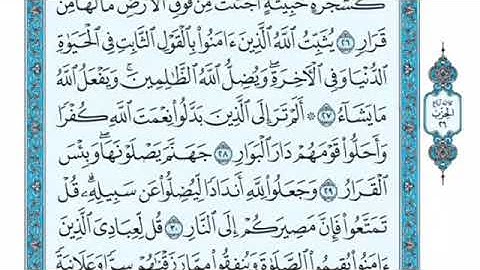 كَشَجَرَةٍ خَبِيثَةٍ ٱجۡتُثَّتۡ مِن فَوۡقِ ٱلۡأَرۡضِ مَا لَهَا مِن
قَرَارٖ ٢٦ يُثَبِّتُ ٱللَّهُ ٱلَّذِينَ ءَامَنُواْ بِٱلۡقَوۡلِ ٱلثَّابِتِ فِي ٱلۡحَيَوٰةِ
ٱلدُّنۡيَا وَفِي ٱلۡأٓخِرَةِۖ وَيُضِلُّ ٱللَّهُ ٱلظَّٰلِمِينَۚ وَيَفۡعَلُ ٱللَّهُ
مَا يَشَآءُ ٢٧ ۞ أَلَمۡ تَرَ إِلَى ٱلَّذِينَ بَدَّلُواْ نِعۡمَتَ ٱللَّهِ كُفۡرٗا
وَأَحَلُّواْ قَوۡمَهُمۡ دَارَ ٱلۡبَوَارِ ٢٨ جَهَنَّمَ يَصۡلَوۡنَهَاۖ وَبِئۡسَ
ٱلۡقَرَارُ ٢٩ وَجَعَلُواْ لِلَّهِ أَندَادٗا لِّيُضِلُّواْ عَن سَبِيلِهِۦۗ قُلۡ
تَمَتَّعُواْ فَإِنَّ مَصِيرَكُمۡ إِلَى ٱلنَّارِ ٣٠ قُل لِّعِبَادِيَ ٱلَّذِينَ
ءَامَنُواْ يُقِيمُواْ ٱلصَّلَوٰةَ وَيُنفِقُواْ مِمَّا رَزَقۡنَٰهُمۡ سِرّٗا وَعَلَانِيَةٗ
الحزب
٢٦